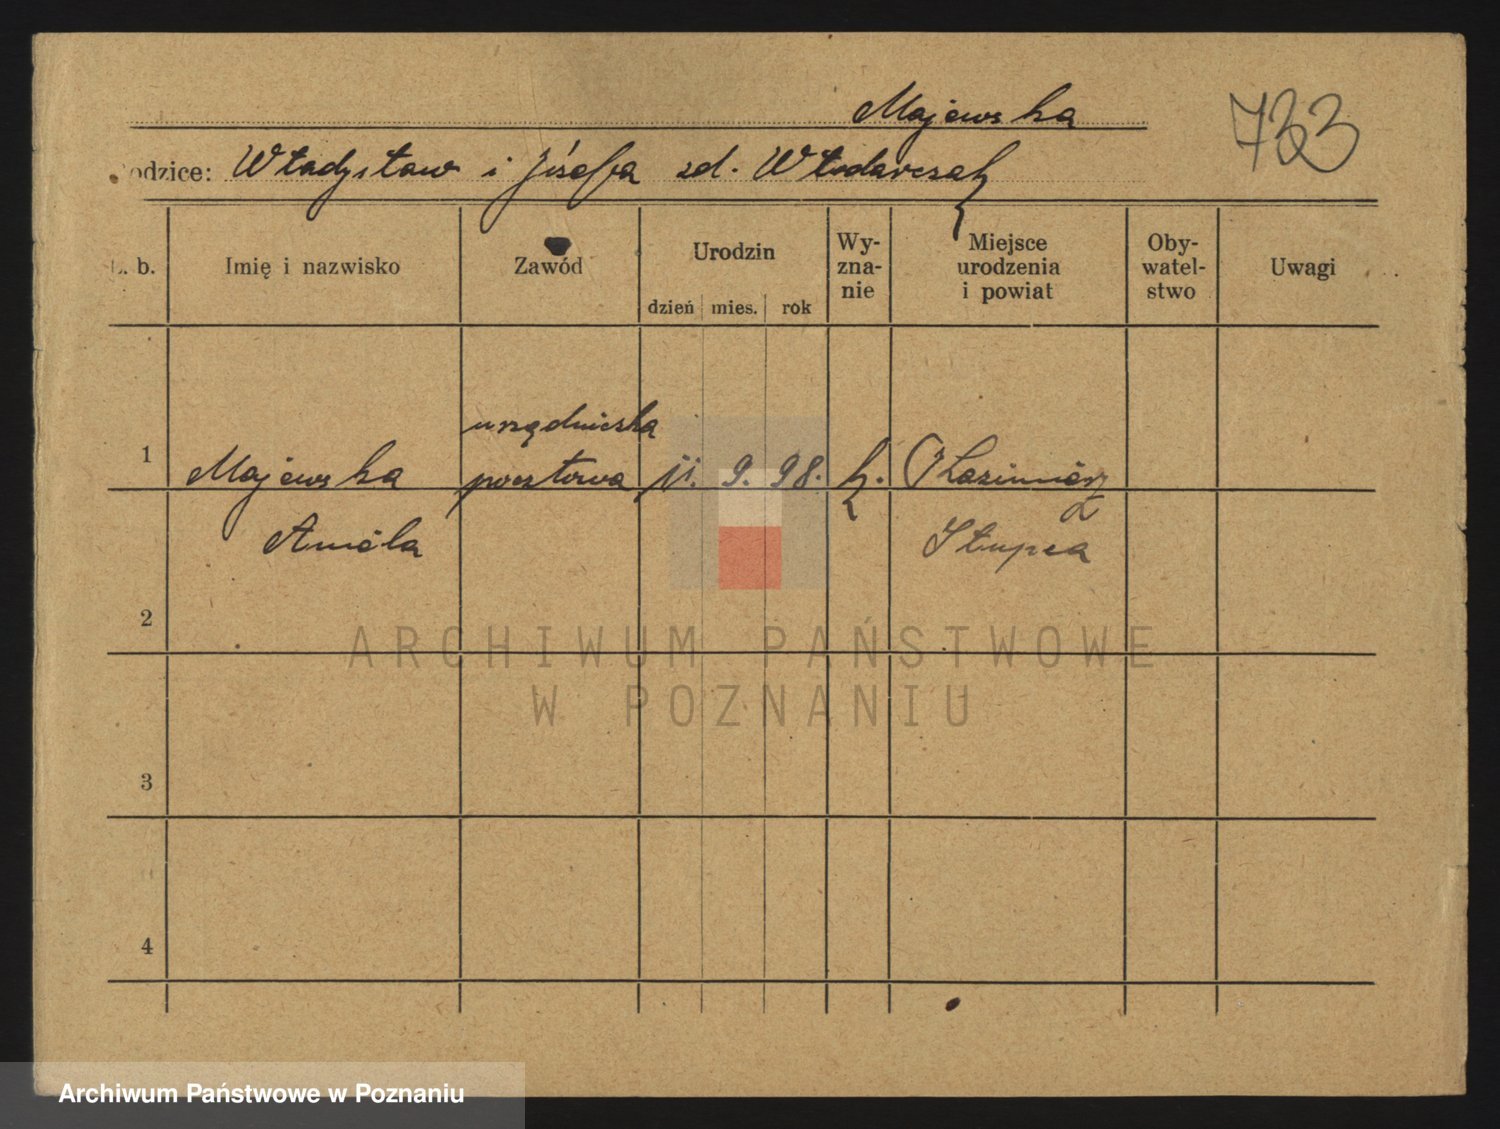 Majewska
733
odzice: Władysław i Józefa zd. Włodarczak
L. b.
Imię i nazwisko
Zawód
Urodzin
dzień mies. rok
Wy-
zna-
nie
Miejsce
urodzenia
i powiat
Oby-
watel-
stwo
Uwagi
1
Majewska
Aniela
urzędniczka
pocztowa
11. 9. 98.
k.
Kazimierz
Słupca
2
3
4
ARCHIWUM PAŃSTWOWE
W POZNANIU
Archiwum Państwowe w Poznaniu